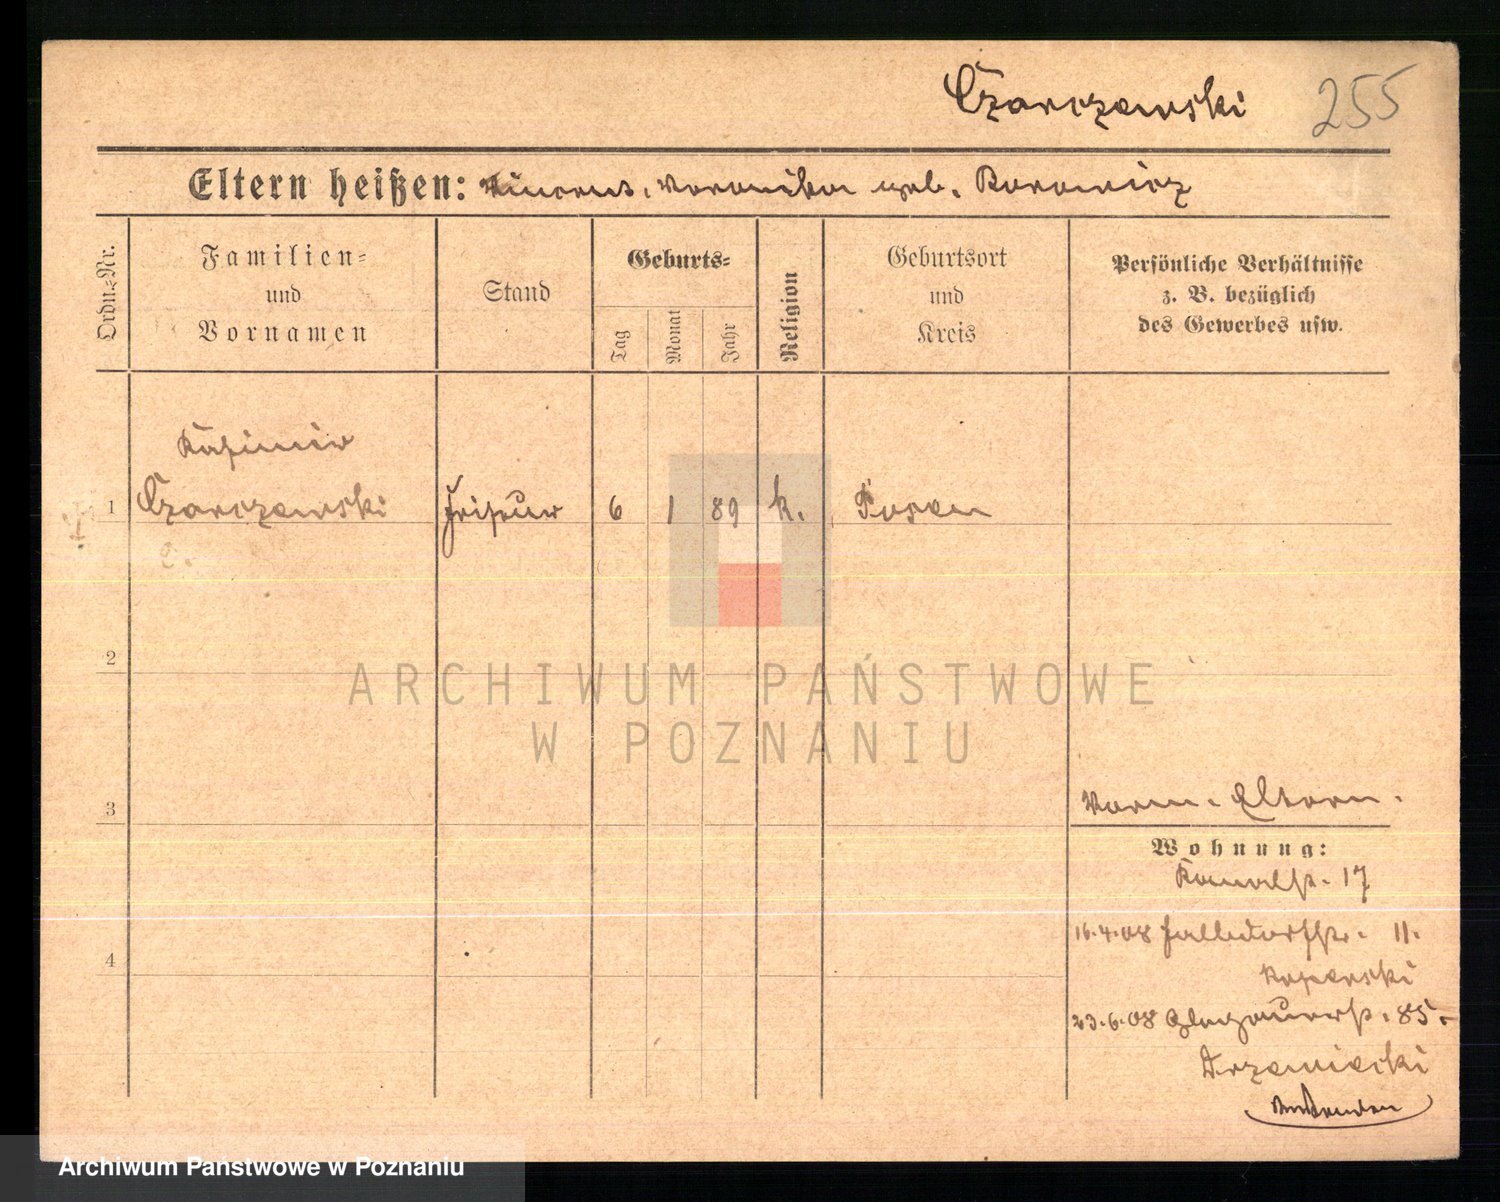 Czarczewski 255
Eltern heißen: Vincent, Veronika geb. Borowicz
Ordn.-Nr.
Familien-
und
Vornamen
Stand
Geburts-
Tag
Monat
Jahr
Religion
Geburtsort
und
Kreis
Persönliche Verhältnisse
z. B. bezüglich
des Gewerbes usw.
Kasimir
1 Czarczewski Friseur 6 1 89 k. Posen
2
3
4
Vorm. Eltern.
Wohnung:
Kanalstr. 17
16.4.08 11.
23.6.08 Glogauerstr. 85.
ARCHIWUM PAŃSTWOWE
W POZNANIU
Archiwum Państwowe w Poznaniu